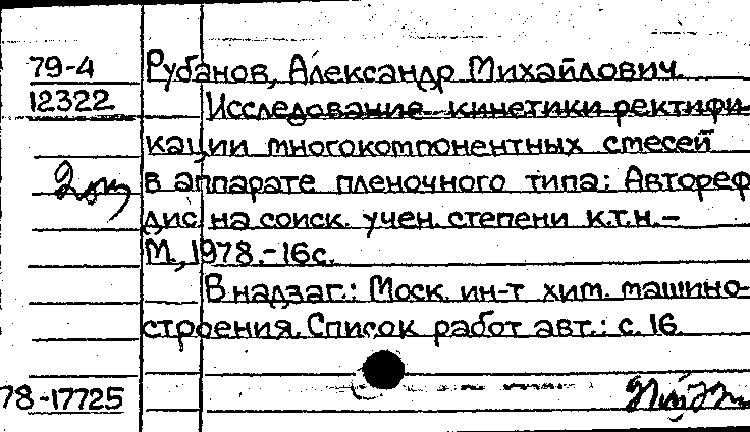 79-4 Рубанов, Александр Михайлович.
12322 Исследование кинетики ректифи-
кации многокомпонентных смесей
в аппарате пленочного типа: Автореф
дис. на соиск. учен. степени к.т.н.-
М., 1978.-16с.
В надзаг.: Моск. ин-т хим. машино-
строения. Список работ авт.: с. 16
78-17725